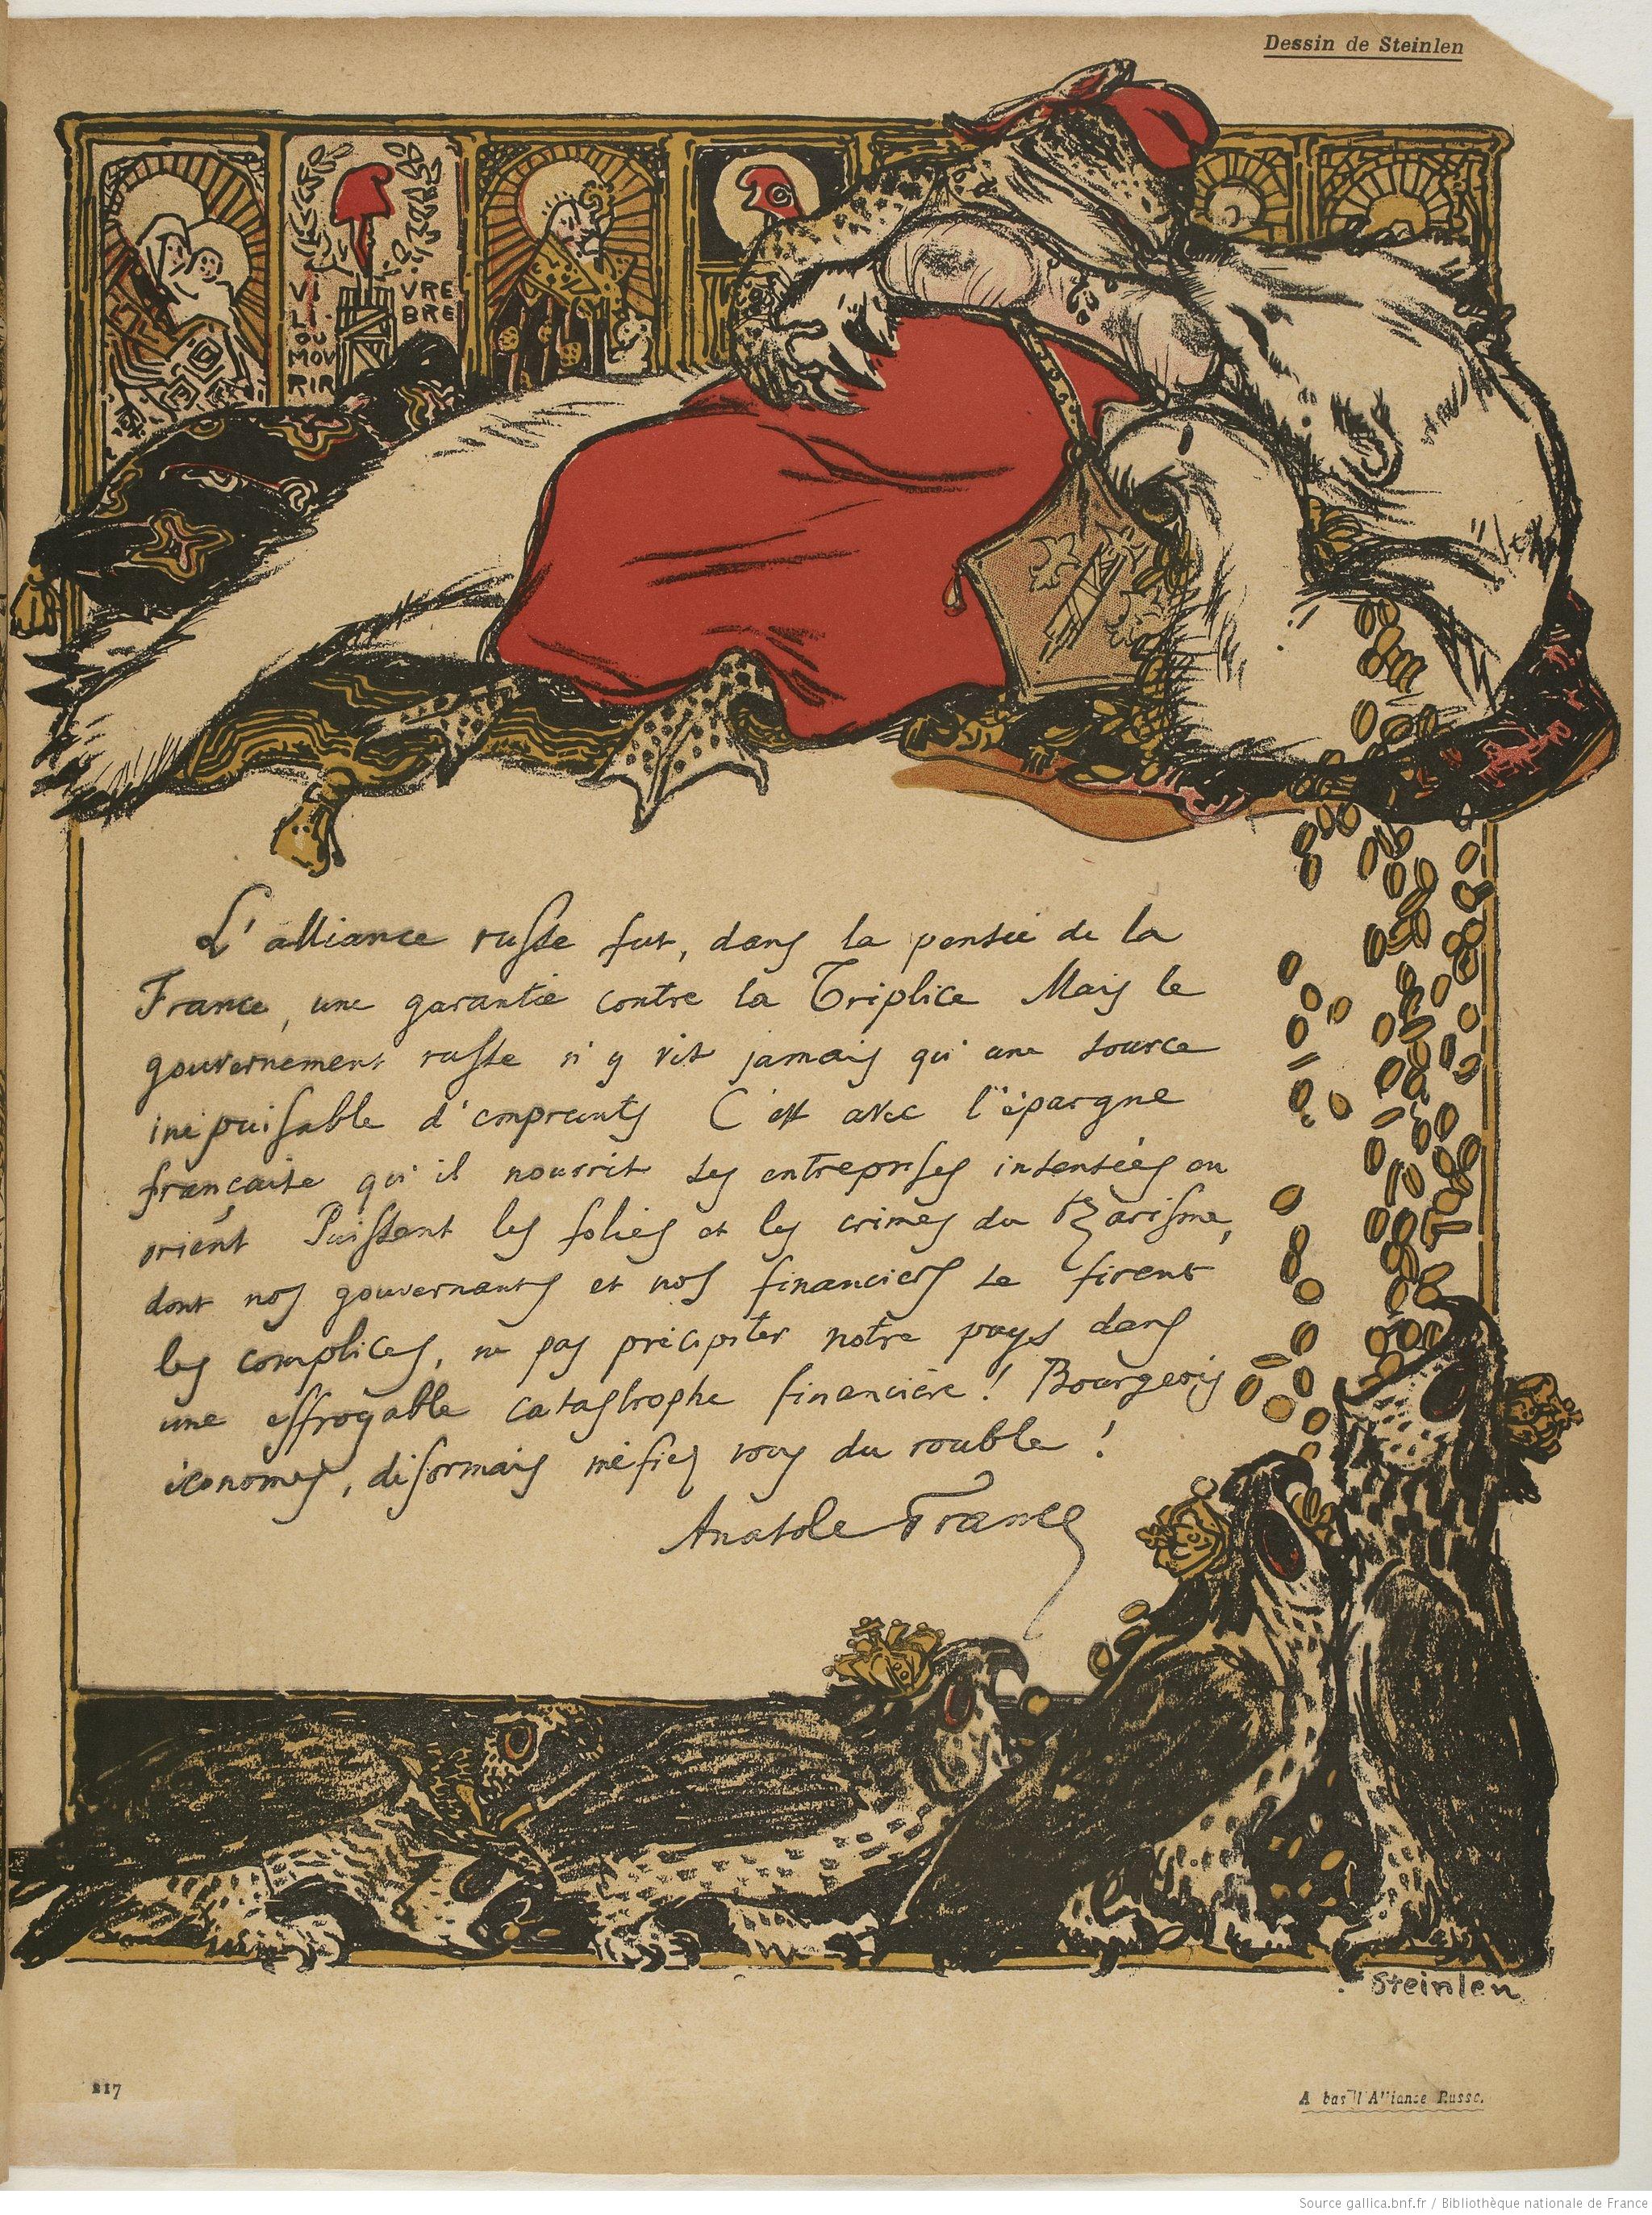 Dessin de Steinlen
VI VRE
LI BRE
OU
MOU
RIR
L'alliance russe fut, dans la pensée de la
France, une garantie contre la Triplice Mais le
gouvernement russe n'y vit jamais qu'une source
inépuisable d'emprunts C'est avec l'épargne
française qu'il nourrit ses entreprises insensées en
orient Puissent les folies et les crimes du tzarisme,
dont nos gouvernants et nos financiers se firent
les complices, ne pas précipiter notre pays dans
une effroyable catastrophe financière ! Bourgeois
économes, désormais méfiez vous du rouble !
Anatole France
Steinlen
217
A bas l'Alliance Russe.
Source gallica.bnf.fr / Bibliothèque nationale de France